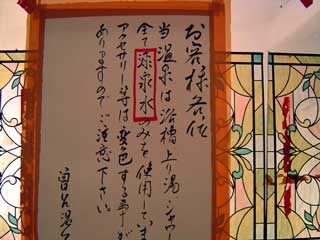 お客様各位
当温泉は浴槽上り湯・シャワー
全て源泉水のみを使用していま
アクセサリー等は変色する事が
ありますのでご注意下さい。